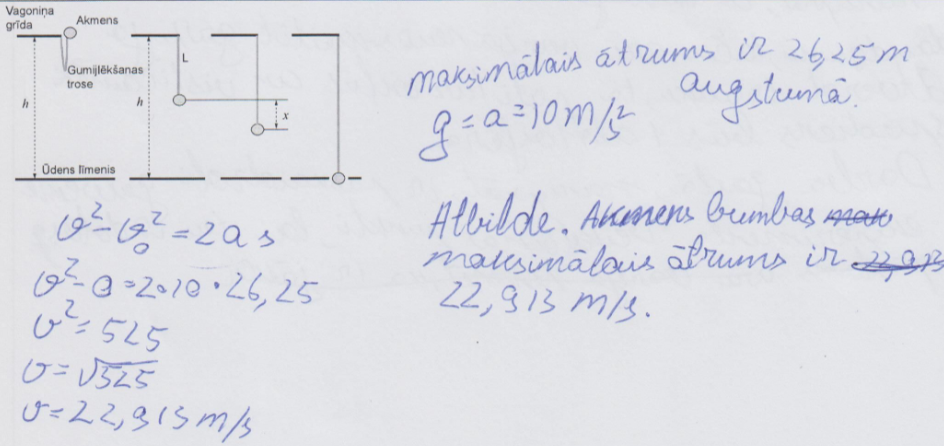 Vagoniņa
grīda
Akmens
L
Gumijlēkšanas
trose
h
h
x
Ūdens līmenis
maksimālais ātrums ir 26,25 m
augstumā.
g = a = 10 m/s²
v² - v₀² = 2as
v² - 0 = 2·10·26,25
v² = 525
v = √525
v = 22,913 m/s
Atbilde. Akmens bumbas mak
maksimālais ātrums ir 22,913
22,913 m/s.